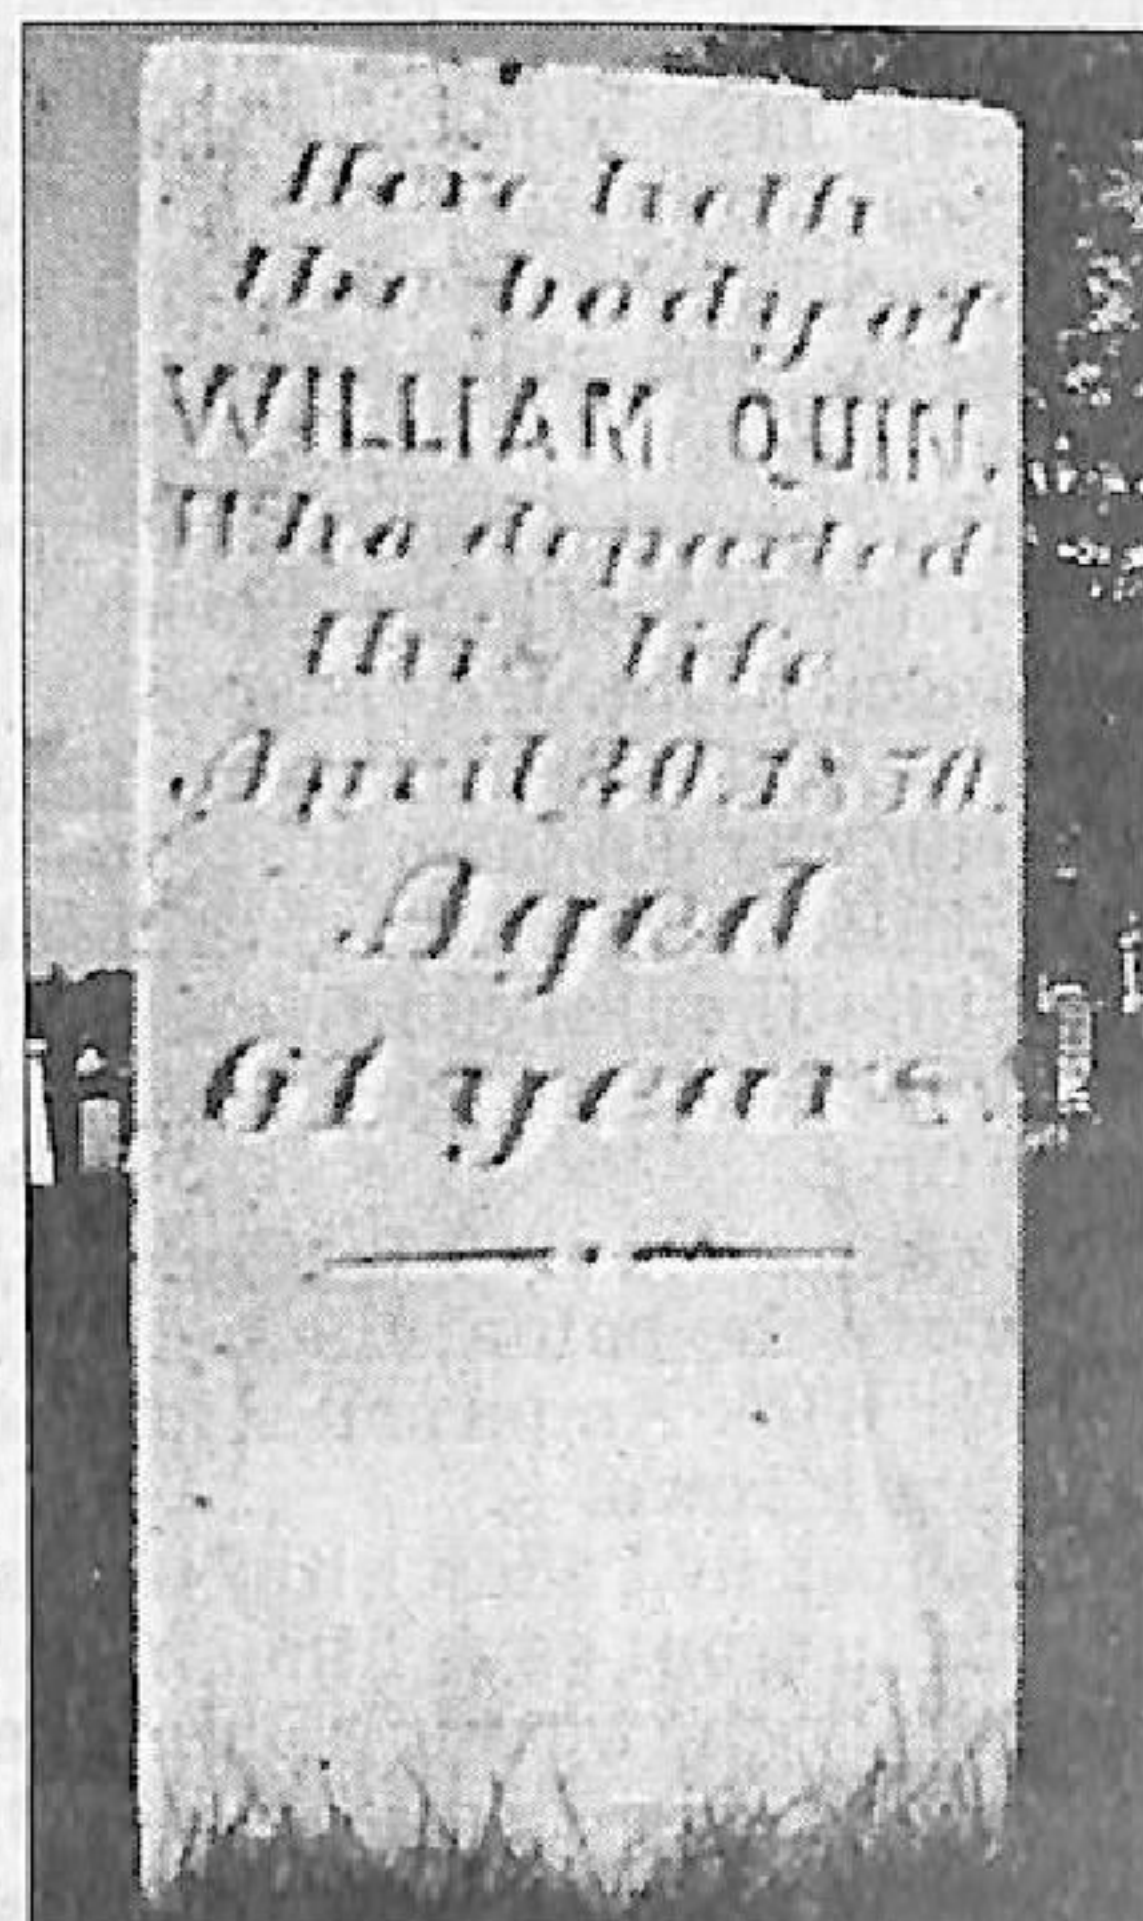 Here lieth
the body of
WILLIAM QUIN.
Who departed
this life
April 30. 1850.
Aged
61 years.